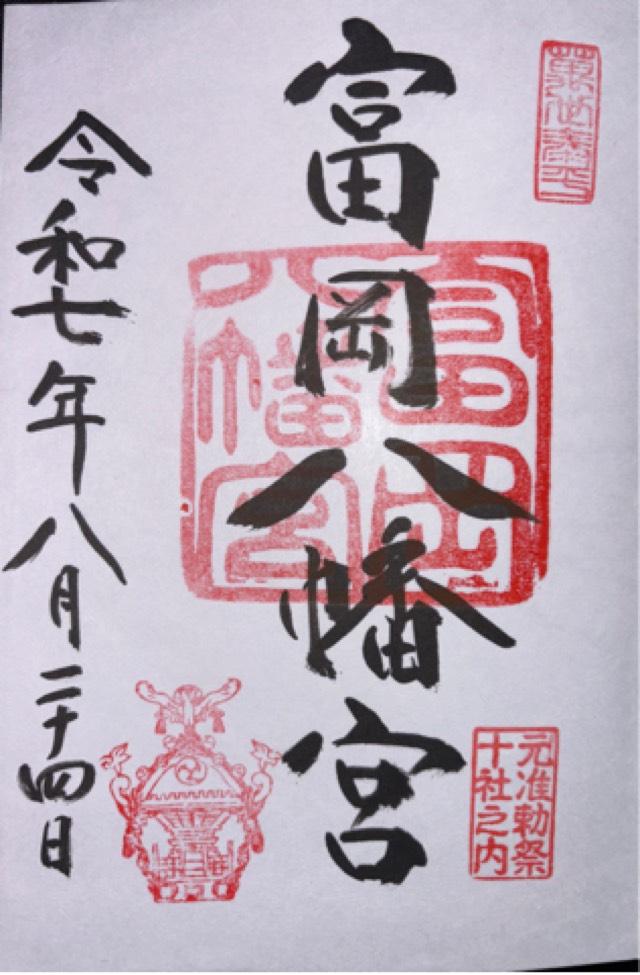 富岡八幡宮
富岡
八幡宮
元准勅祭
十社之内
令和七年八月二十四日